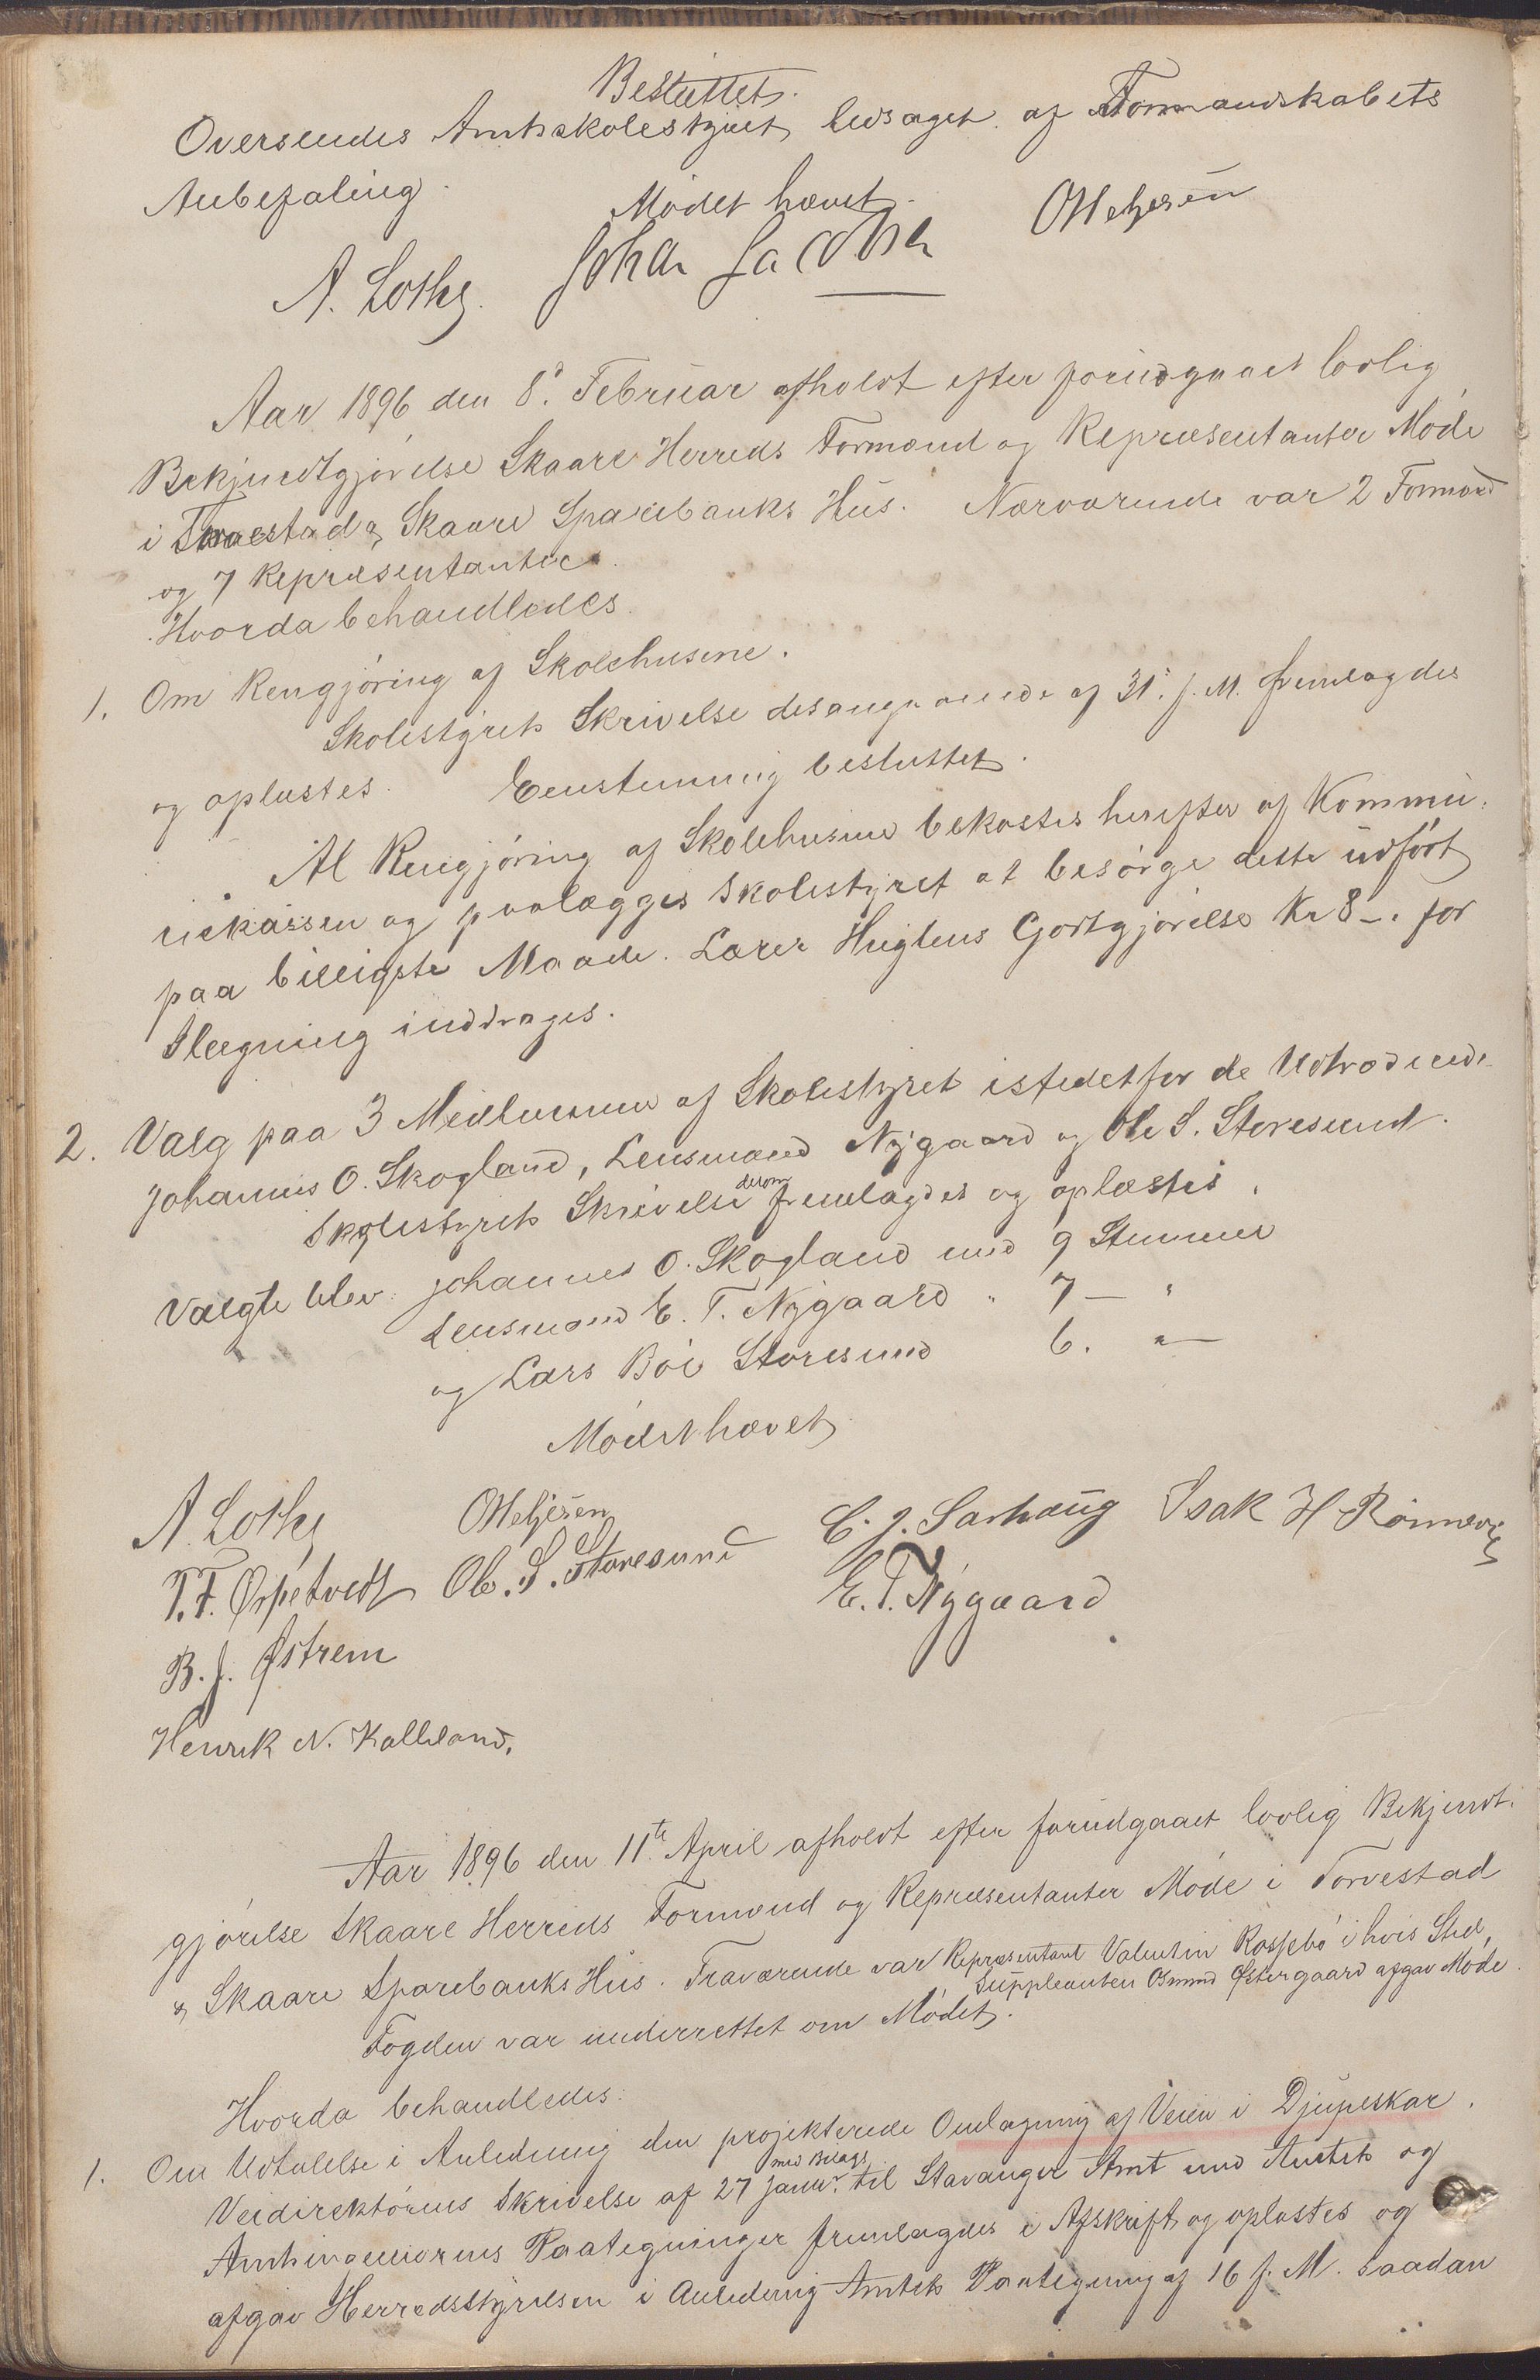 Besluttet.
Oversendes Amtsskolestyret ledsaget af Formandskabets
Anbefaling.
Mødet hævet.
A. Lothe Johan Jacobsen O Helgesen
Aar 1896 den 8d. Februar afholdt efter forudgaaet lovlig
Bekjendtgjørelse Skaare Herreds Formænd og Repræsentanter Møde
i Torvestad & Skaare Sparebanks Hus. Nærværende var 2 Formænd
og 7 Repræsentanter.
Hvorda behandledes.
1. Om Rengjøring af Skolehusene.
Skolestyrets Skrivelse desangaaende af 31. f. M. fremlagdes
og oplæstes. Eenstemmig besluttet.
Al Rengjøring af Skolehusene bekostes herefter af Kommu-
nekassen og paalægges Skolestyret at besørge dette udført
paa billigste Maade. Lærer Huglens Godtgjørelse Kr 8 –. for
Ilægning inddrages.
2. Valg paa 3 Medlemmer af Skolestyret istedetfor de Udtrædende
Johannes O. Skogland, Lensmand Nygaard og Ole S. Storesund.
Skolestyrets Skrivelse derom fremlagdes og oplæstes.
Valgte blev: Johannes O. Skogland med 9 Stemmer
Lensmand E. T. Nygaard " 7 — "
og Lars Bøe Storesund 6. " —
Mødet hævet
A. Lothe O Helgesen C. J. Sarhaug Isak H Rønnevig
T. T. Ørpetvedt Ole. S. Storesund E. T. Nygaard
B. J. Østrem
Henrik N. Kalleland.
Aar 1896 den 11te April afholdt efter forudgaaet lovlig Bekjendt-
gjørelse Skaare Herreds Formænd og Repræsentanter Møde i Torvestad
& Skaare Sparebanks Hus. Fraværende var Repræsentant Valentin Rossebø i hvis Sted,
Suppleanten Osmund Østergaard afgav Møde.
Fogden var underrettet om Mødet.
Hvorda behandledes:
1. Om Udtalelse i Anledning den projekterede Omlægning af Veien i Djupeskar.
Veidirektørens Skrivelse af 27 Januar med Bilags til Stavanger Amt med Amtets og
Amtsingeniørens Paategninger fremlagdes i Afskrift og oplæstes og
afgav Herredsstyrelsen i Anledning Amtets Paategning af 16 f. M. saadan